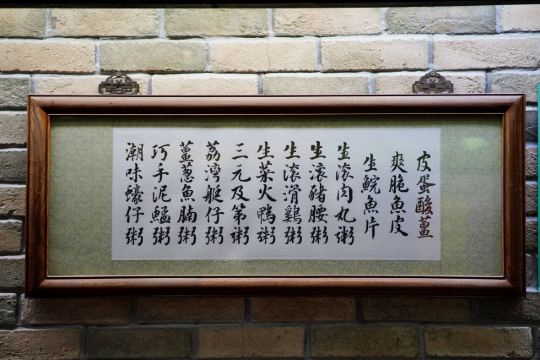 皮蛋酸薑
爽脆魚皮
生鯇魚片
生滾肉丸粥
生滾豬腰粥
生滾滑鷄粥
生菜火鴨粥
三元及第粥
荔灣艇仔粥
薑葱魚腩粥
巧手泥鯭粥
潮味蠔仔粥